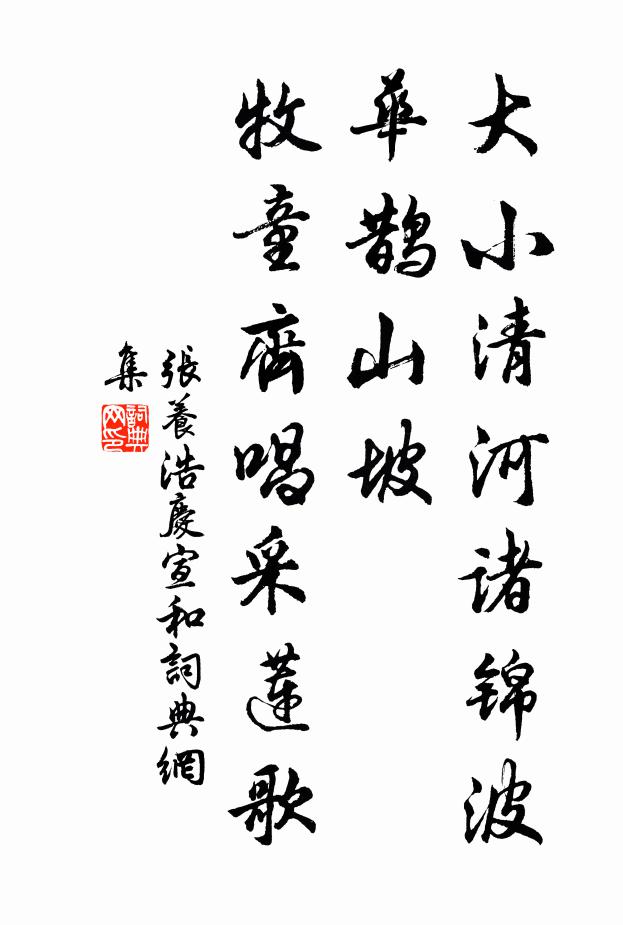 大小清河諸锦波
華鹊山坡
牧童齊唱采蓮歌
張養浩慶宣和詞典網
集
詞典网印